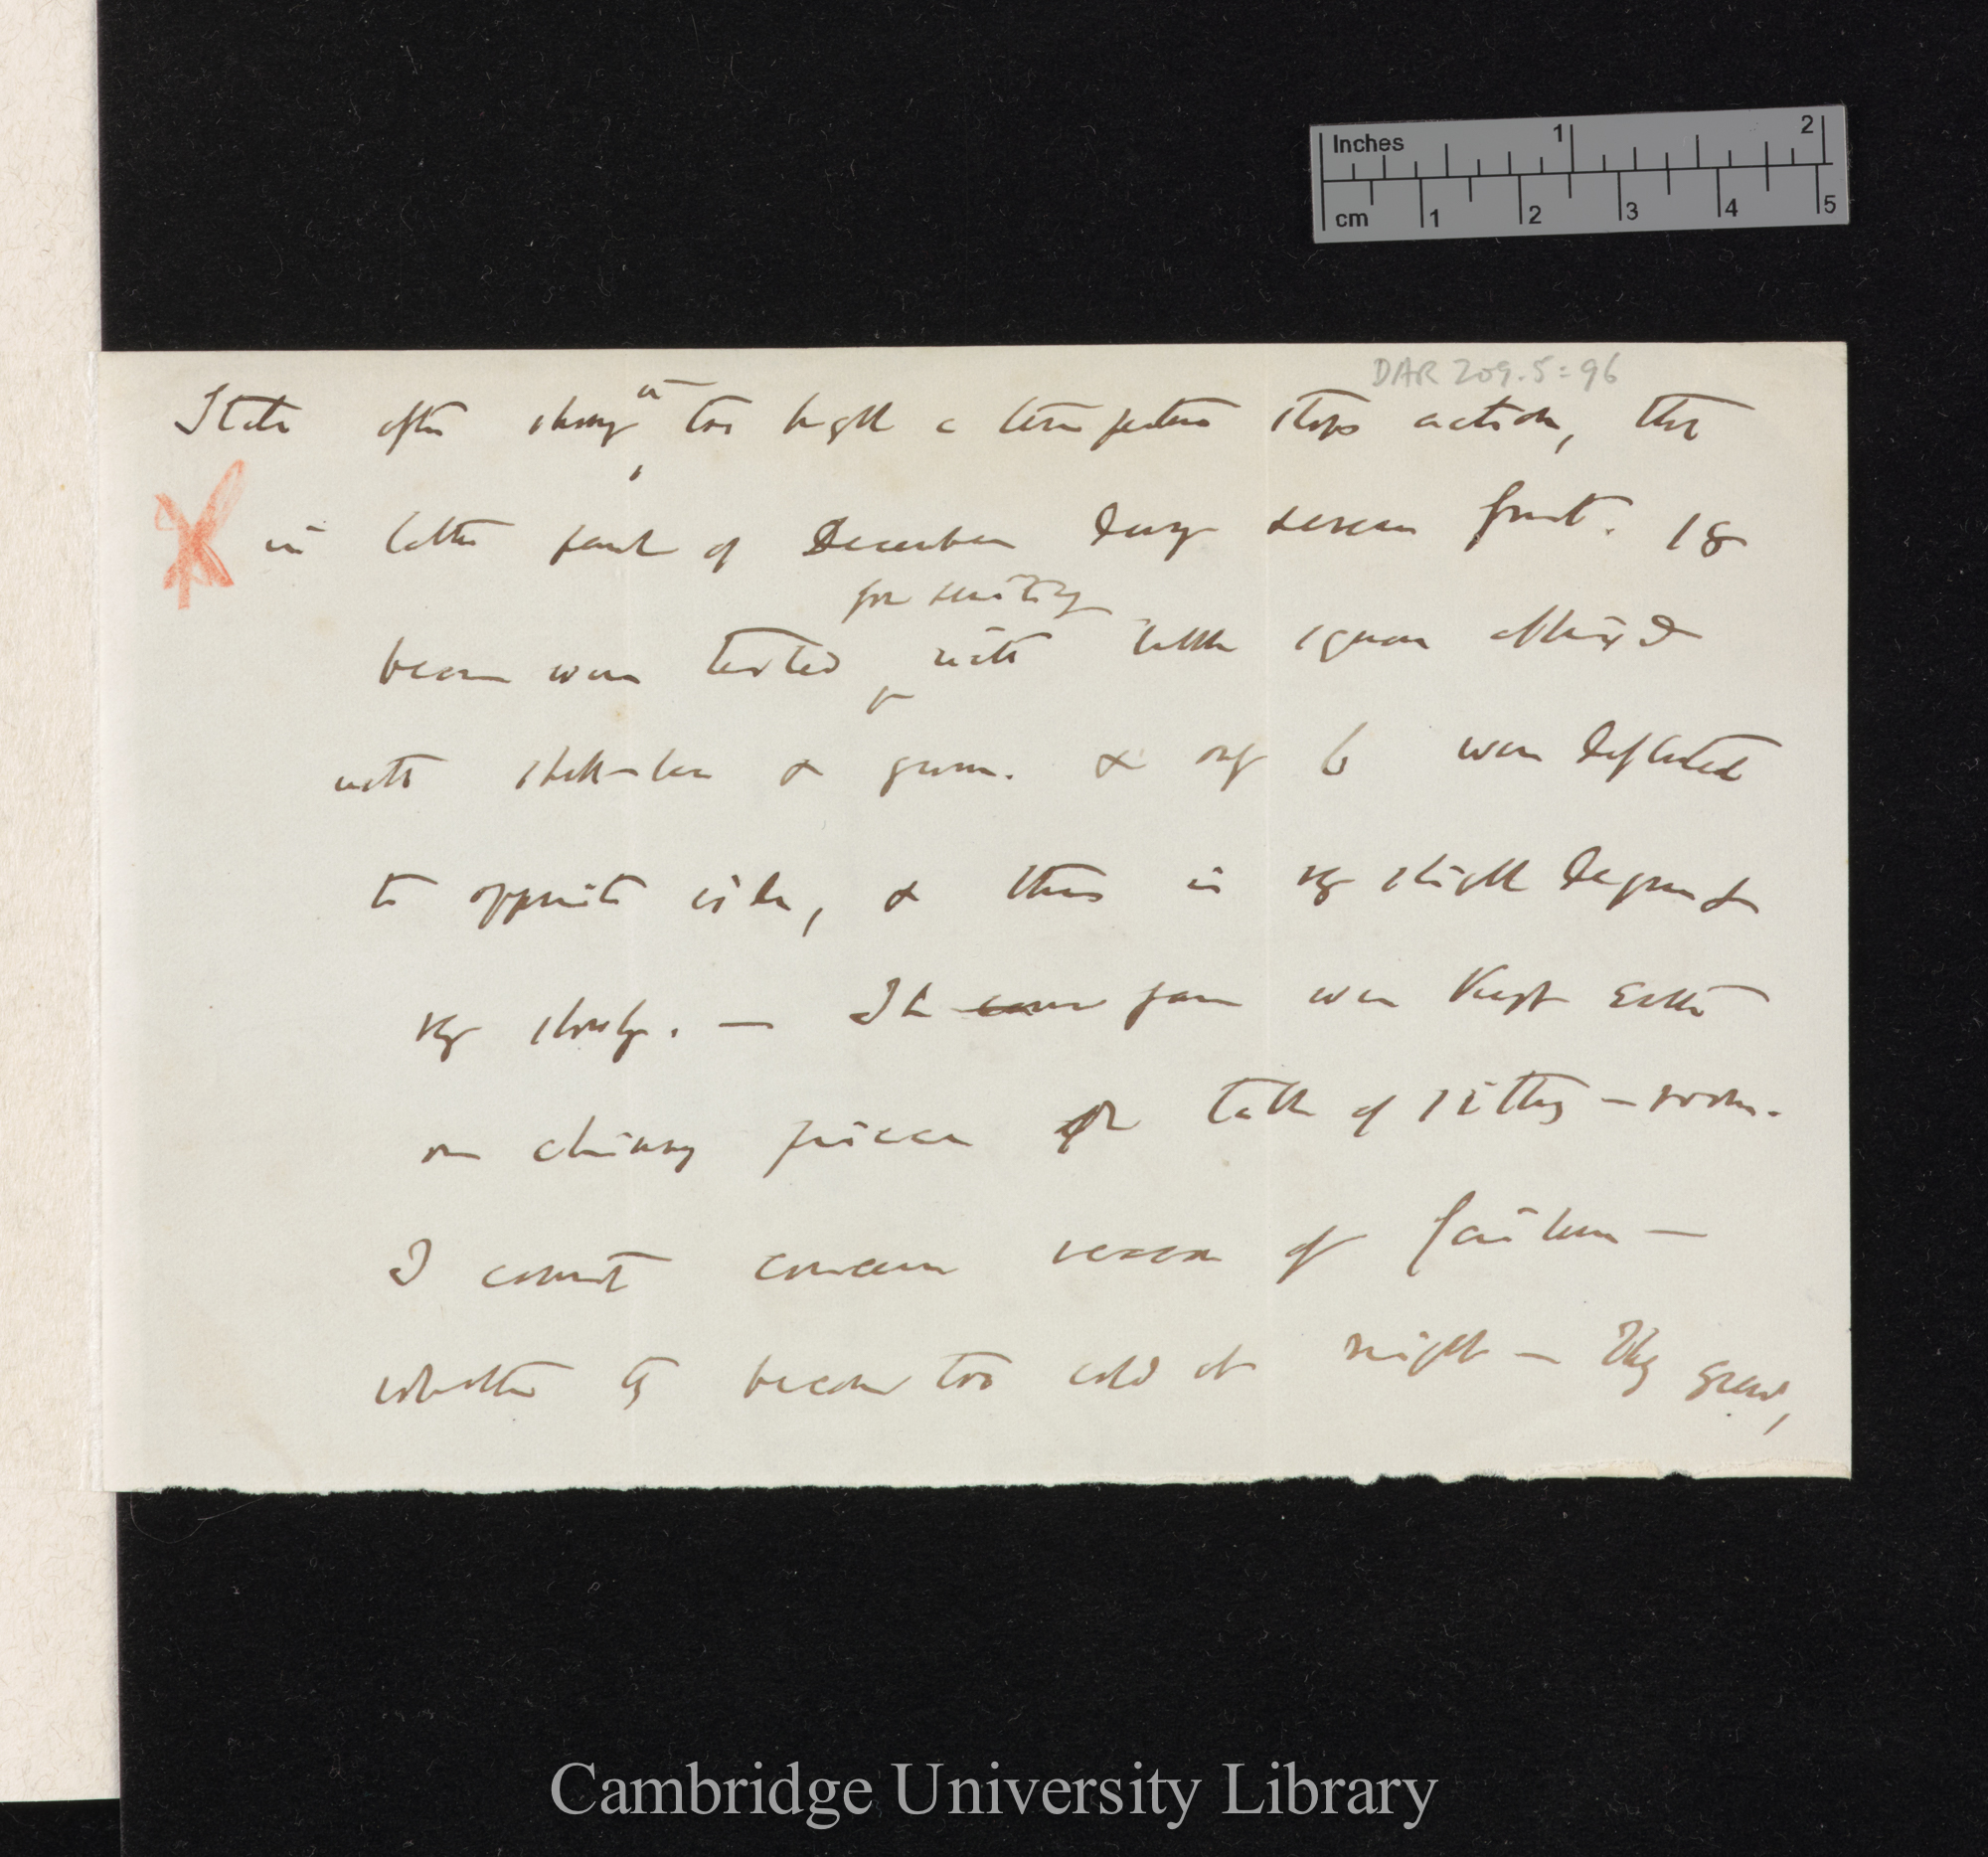 Inches 1 2
cm 1 2 3 4 5
DAR 209.5:96
State after showing in too high a temperature stops action, that
in latter part of December during severe frost. 18
beans were tested for sensitivity with little squares affixed
with shell-lac & gum. & only 6 were deflected
to opposite side, & these in very slight degree &
very slowly. — The same jars were kept either
on chimney piece or table of sitting-room.
I cannot conceive reason of failure —
whether they became too cold at night — They grew,
Cambridge University Library